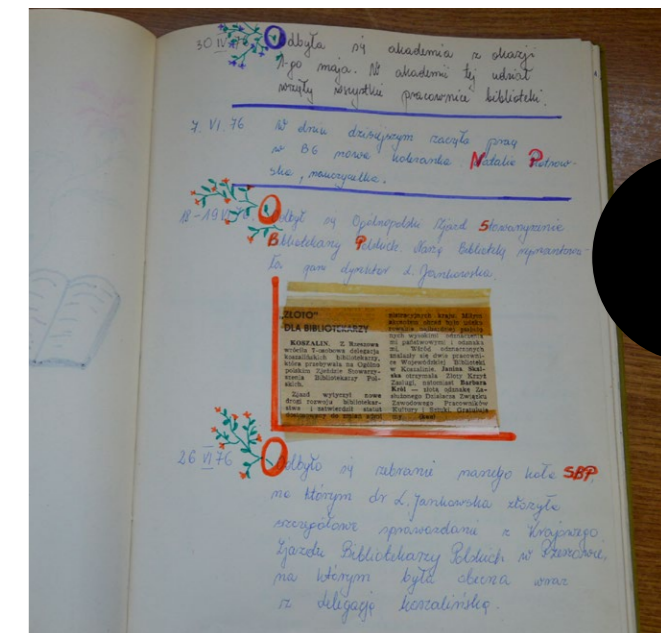 30 IV 76 Odbyła się akademia z okazji
1-go maja. W akademii tej udział
wzięły wszystkie pracownice biblioteki.
7. VI. 76 W dniu dzisiejszym zaczęła pracę
w BG nowa koleżanka Natalia Piotrow-
ska, nauczycielka.
18-19 VI 76. Odbył się Ogólnopolski Zjazd Stowarzyszenia
Bibliotekarzy Polskich. Naszą Bibliotekę reprezentowa-
ła pani dyrektor L. Jankowska.
„ZŁOTO"
DLA BIBLIOTEKARZY
KOSZALIN. Z Rzeszowa
wróciła 7-osobowa delegacja
koszalińskich bibliotekarzy,
która przebywała na Ogólno
polskim Zjeździe Stowarzy-
szenia Bibliotekarzy Pol-
skich.
Zjazd wytyczył nowe
drogi rozwoju bibliotekar-
stwa i zatwierdził statut
dostosowany do zmian admi
nistracyjnych kraju. Miłym
akcentem obrad było udeko
rowanie najbardziej zasłużo
nych wysokimi odznaczenia
mi państwowymi i odznaka
mi. Wśród odznaczonych
znalazły się dwie pracowni-
ce Wojewódzkiej Biblioteki
w Koszalinie. Janina Skal-
ska otrzymała Złoty Krzyż
Zasługi, natomiast Barbara
Król — złotą odznakę Za-
służonego Działacza Związku
Zawodowego Pracowników
Kultury i Sztuki. Gratuluje
my.
26 VI 76 Odbyło się zebranie naszego koła SBP,
na którym dr L. Jankowska złożyła
szczegółowe sprawozdanie z Krajowego
Zjazdu Bibliotekarzy Polskich w Rzeszowie,
na którym była obecna wraz
z delegacją koszalińską.